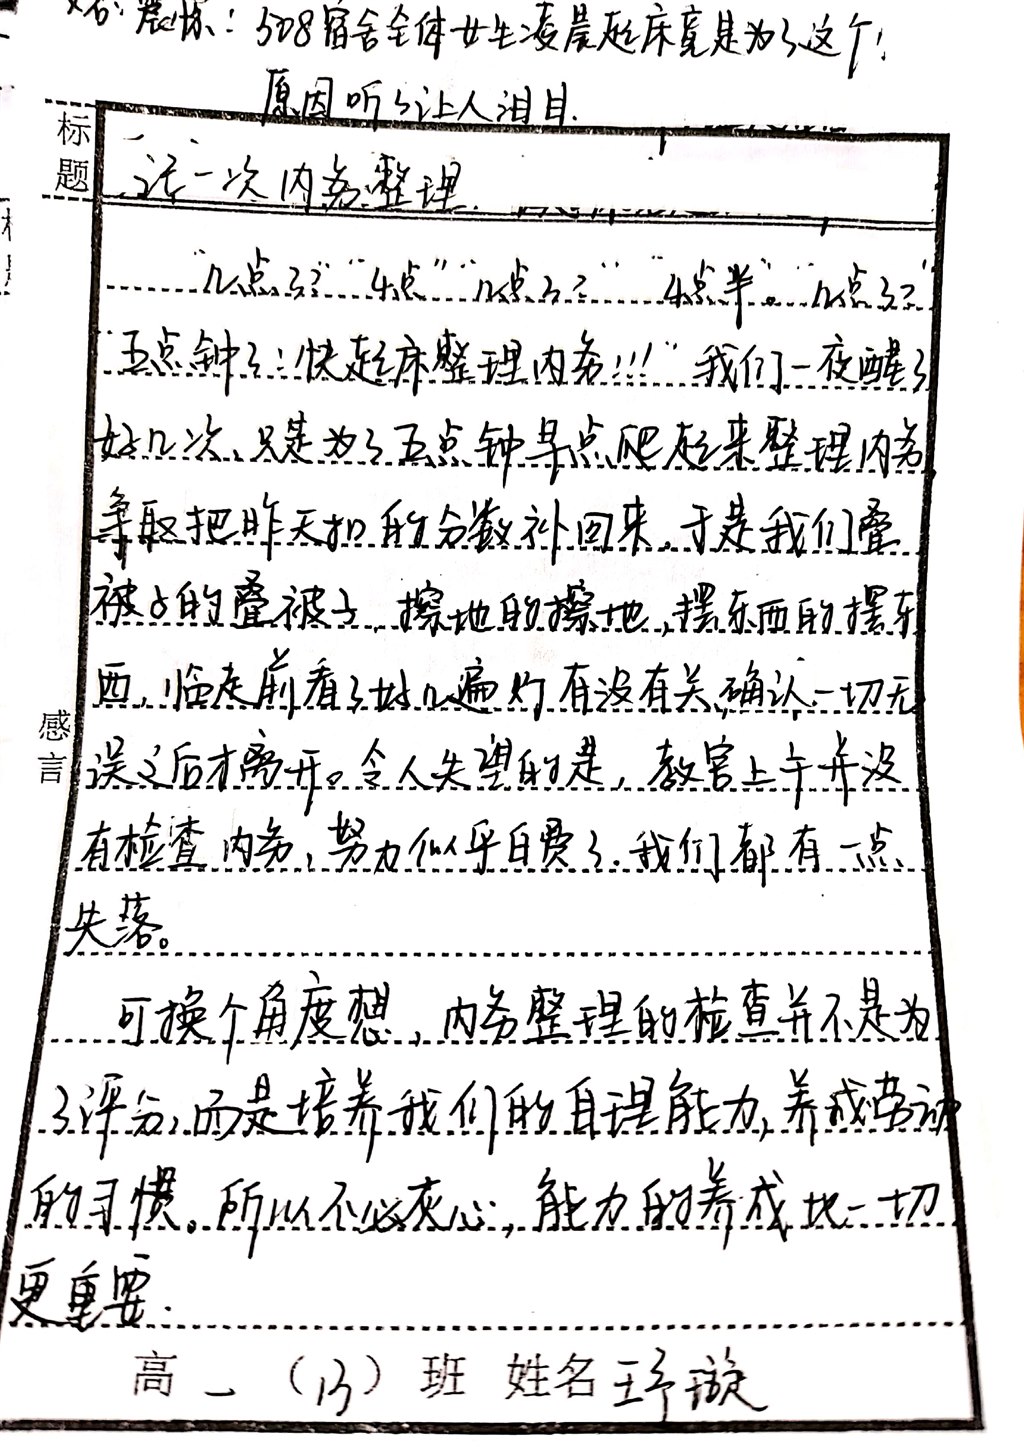 震惊！508宿舍全体女生凌晨起床竟是为了这个！
原因听了让人泪目.
标题
记一次内务整理.
"几点了？""4点""几点了？""4点半。""几点了？"
"五点钟了！快起床整理内务！！！"我们一夜醒了
好几次、只是为了五点钟早点爬起来整理内务,
争取把昨天扣的分数补回来,于是我们叠
被子的叠被子,擦地的擦地,摆东西的摆东
西,临走前看了好几遍灯有没有关,确认一切无
误之后才离开。令人失望的是,教官上午并没
有检查内务,努力似乎白费了.我们都有一点
失落。
感言
可换个角度想,内务整理的检查并不是为
了评分,而是培养我们的自理能力,养成劳动
的习惯。所以不必灰心,能力的养成比一切
更重要.
高一（13）班 姓名王予璇